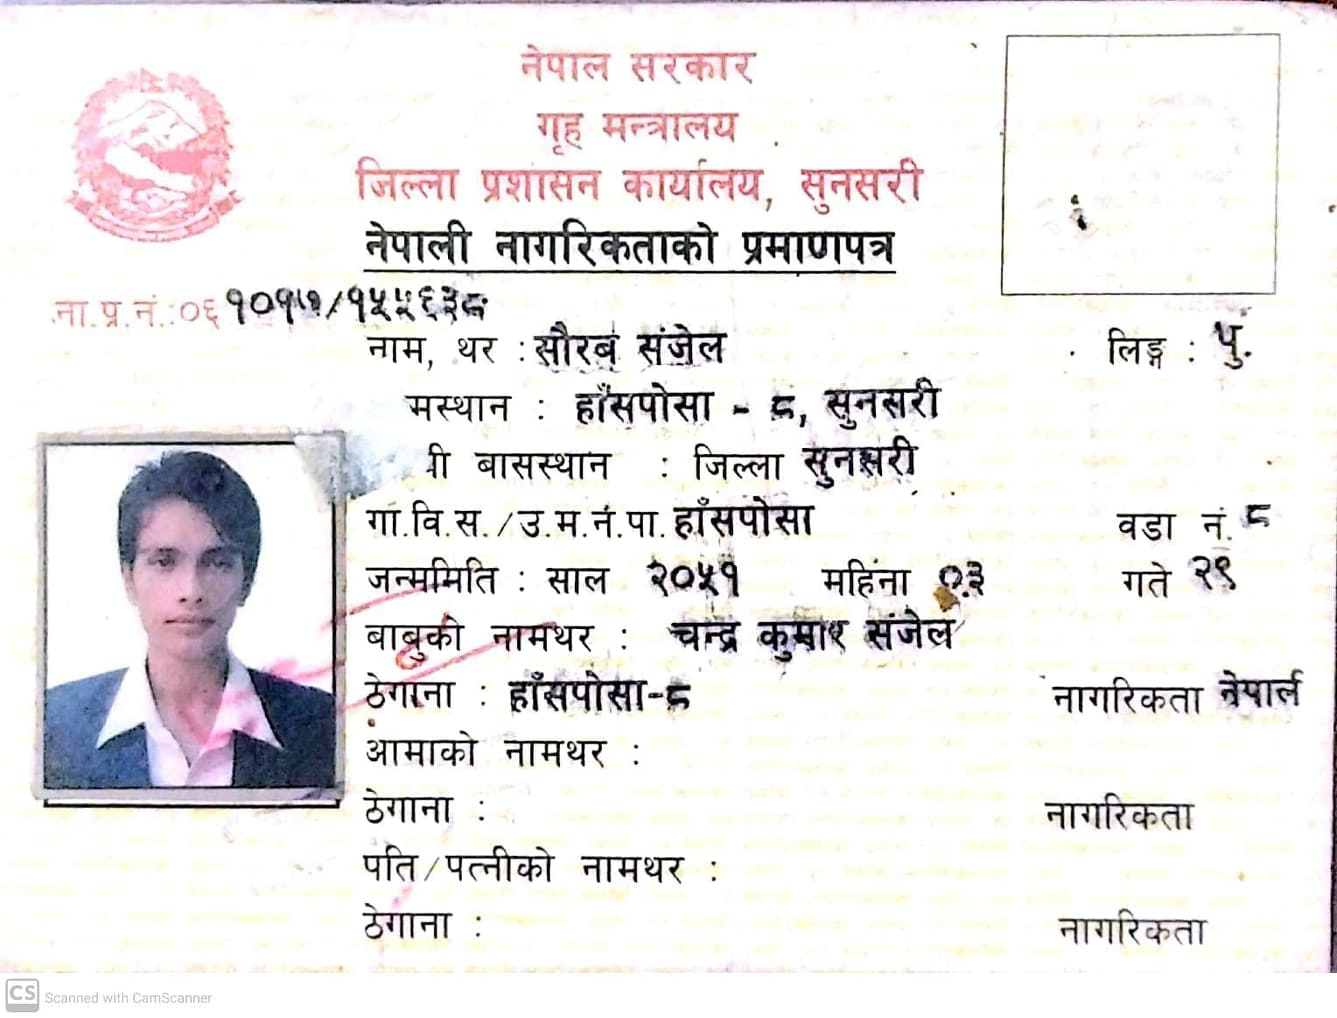 नेपाल सरकार
गृह मन्त्रालय
जिल्ला प्रशासन कार्यालय, सुनसरी
नेपाली नागरिकताको प्रमाणपत्र
ना.प्र.नं.:०६१०१७/१५५६३८
नाम, थर : सौरब संजेल लिङ्ग : पु.
मस्थान : हाँसपोसा - ८, सुनसरी
ी बासस्थान : जिल्ला सुनसरी
गा.वि.स./उ.म.न.पा. हाँसपोसा वडा नं. ८
जन्ममिति : साल २०५१ महिना ०३ गते २९
बाबुको नामथर : चन्द्र कुमार संजेल
ठेगाना : हाँसपोसा-८ नागरिकता नेपाल
आमाको नामथर :
ठेगाना : नागरिकता
पति/पत्नीको नामथर :
ठेगाना : नागरिकता
CS Scanned with CamScanner